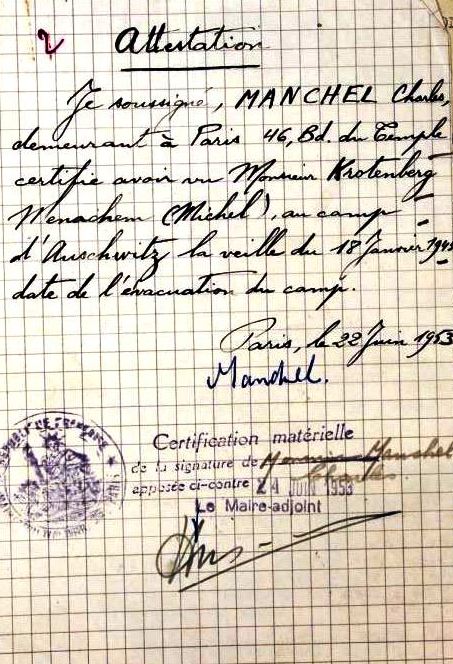 2
Attestation
Je soussigné, MANCHEL Charles,
demeurant à Paris 46, Bd. du Temple
certifie avoir vu Monsieur Krotenberg
Menachem (Michel), au camp -
d'Auschwitz la veille du 18 Janvier 1945
date de l'évacuation du camp.
Paris, le 22 Juin 1953
Manchel.
Certification matérielle
de la signature de Monsieur Manchel
Charles
apposée ci-contre 24 JUIN 1953
Le Maire-adjoint